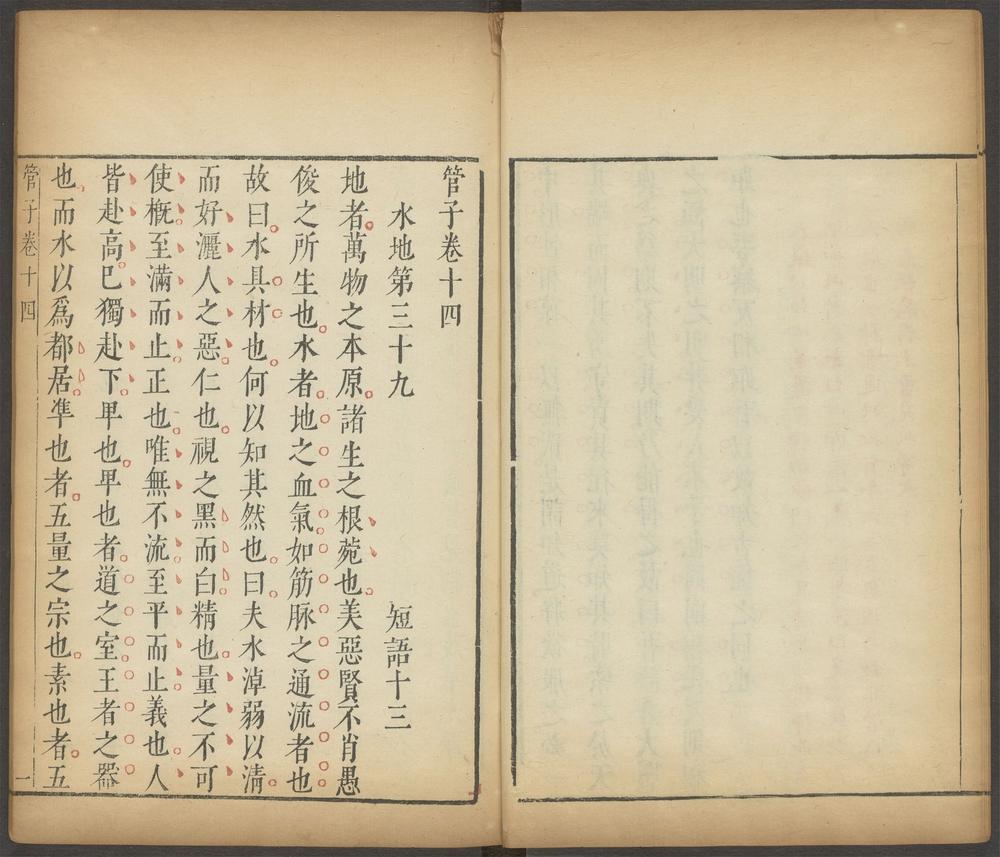 管子卷十四
水地第三十九　短語十三
地者萬物之本原諸生之根菀也美惡賢不肖愚
俊之所生也水者地之血氣如筋脉之通流者也
故曰水具材也何以知其然也曰夫水淖弱以清
而好灑人之惡仁也視之黑而白精也量之不可
使概至滿而止正也唯無不流至平而止義也人
皆赴高已獨赴下卑也卑也者道之室王者之器
也而水以爲都居凖也者五量之宗也素也者五
管子卷十四　一